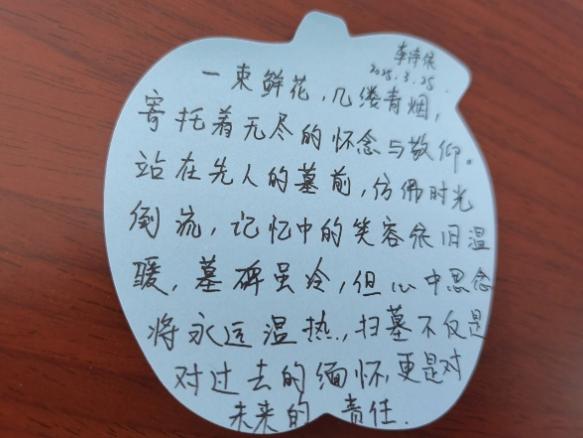 李诗依
2025.3.25.
一束鲜花，几缕青烟，
寄托着无尽的怀念与敬仰。
站在先人的墓前，仿佛时光
倒流，记忆中的笑容依旧温
暖，墓碑虽冷，但心中思念
将永远温热，扫墓不仅是
对过去的缅怀，更是对
未来的责任.